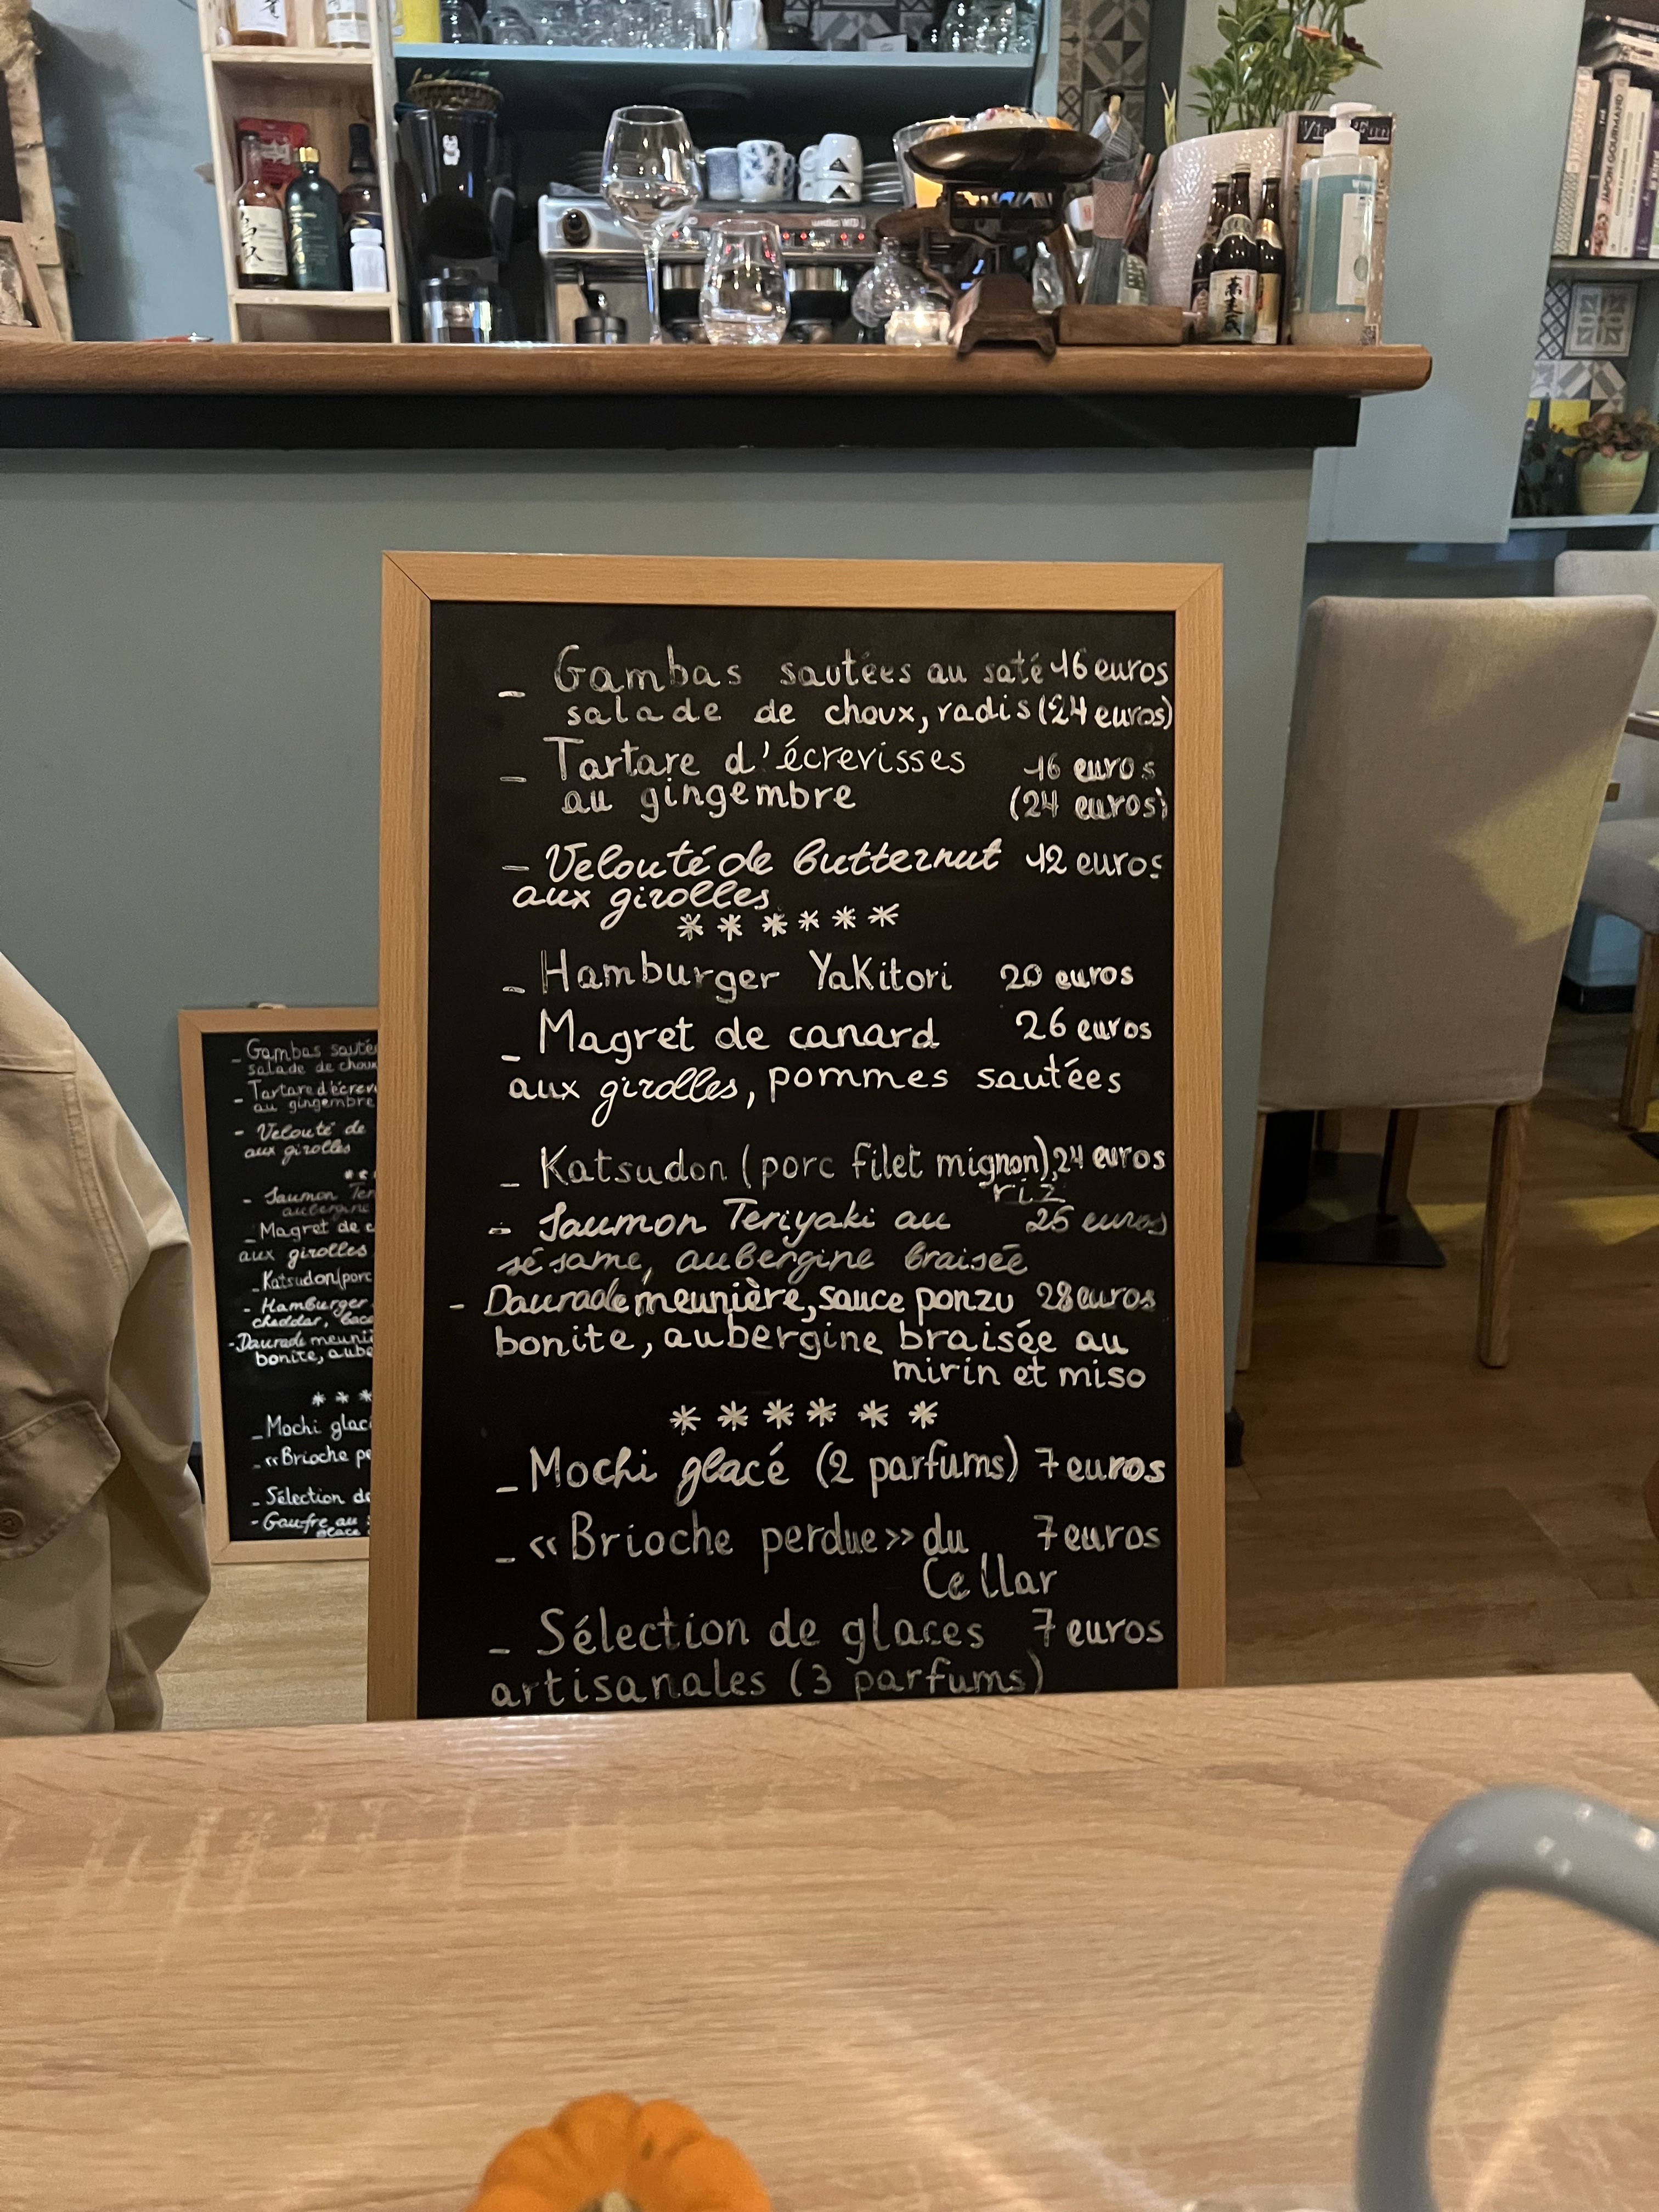 _ Gambas sautées au saté 16 euros
salade de choux, radis (24 euros)
_ Tartare d'écrevisses 16 euros
au gingembre (24 euros)
- Velouté de butternut 12 euros
aux girolles
* * * * * *
_ Hamburger Yakitori 20 euros
_ Magret de canard 26 euros
aux girolles, pommes sautées
_ Katsudon (porc filet mignon), 24 euros
riz
- Saumon Teriyaki au 25 euros
sésame, aubergine braisée
- Daurade meunière, sauce ponzu 28 euros
bonite, aubergine braisée au
mirin et miso
* * * * * *
_ Mochi glacé (2 parfums) 7 euros
_ « Brioche perdue » du 7 euros
Cellar
_ Sélection de glaces 7 euros
artisanales (3 parfums)
_ Gambas sautée
salade de choux
_ Tartare d'écrev
au gingembre
- Velouté de
aux girolles
* *
- Saumon Ter
aubergine
_ Magret de c
aux girolles
_ Katsudon (porc
- Hamburger
cheddar, bac
- Daurade meuni
bonite, aube
* * *
_ Mochi glac
_ « Brioche pe
_ Sélection de
- Gaufre au
glace
JAPON GOURMAND